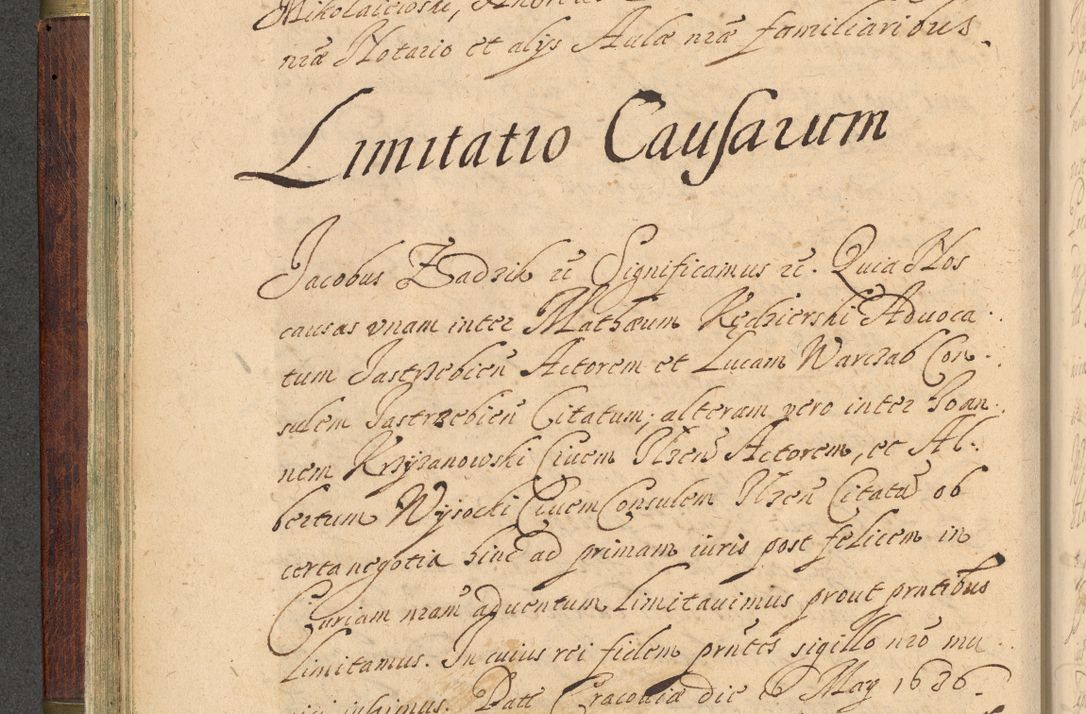 Mikolaicioski,
nræ Notario et alys Aulæ nræ familiaribus.
Limitatio Causarum
Jacobus Zadzik etc Significamus etc. Quia Nos
causas vnam inter Mathæum Kędzierski Aduoca
tum Jastrzebien Actorem et Lucam Warczab Con
sulem Jastrzebien Citatum; alteram vero inter Joan
nem Krzyzanowski Ciuem Ilzen Actorem, et Al
bertum Wysocki Ciuem Consulem Ilzen Citatū ob
certa negotia hinc ad primam iuris post felicem in
Curiam nram aduentum Limitauimus prout prntibus
limitamus. In cuius rei fidem prntes sigillo nro mu
niri iussimus. Datt Cracouiæ die 6 May 1636.